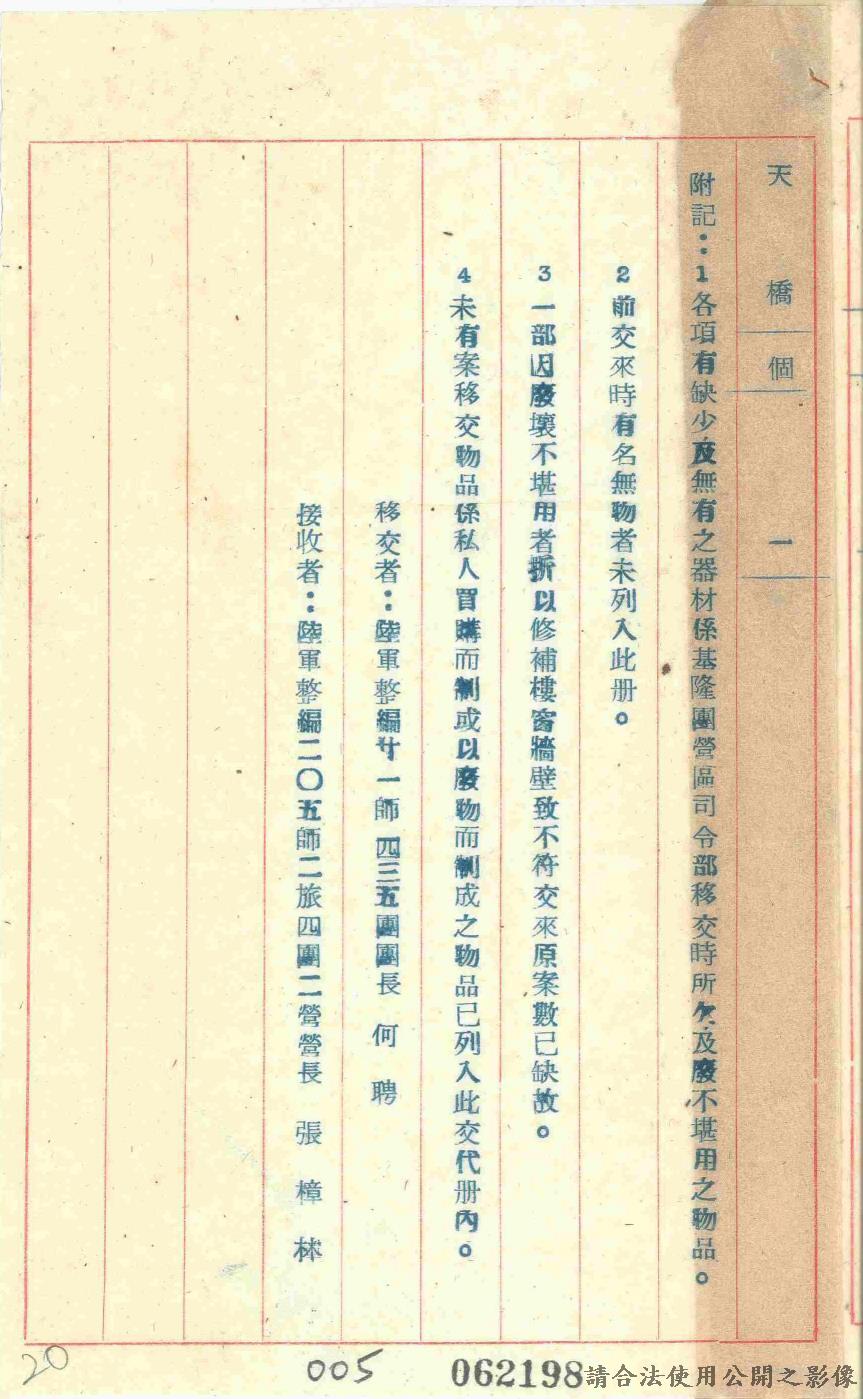 天橋 個 一
附記：1各項有缺少及無有之器材係基隆團營區司令部移交時所欠及廢不堪用之物品。
2前交來時有名無物者未列入此册。
3一部因廢壞不堪用者拆以修補樓窗牆壁致不符交來原案數已缺故。
4未有案移交物品係私人買購而制或以廢物而制成之物品已列入此交代册內。
移交者：陸軍整編廿一師四三五團團長 何聘
接收者：陸軍整編二〇五師二旅四團二營營長 張樟林
20
005
062198
請合法使用公開之影像